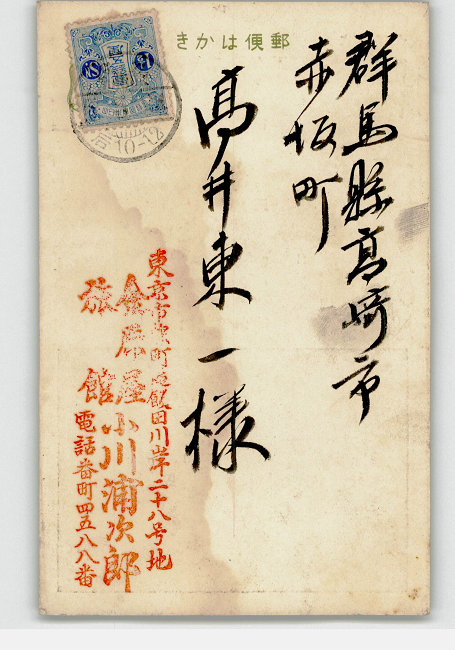 郵便はかき
群馬縣高崎市
赤坂町
高井東一様
東京市麹町區飯田川岸二十八号地
旅館
屋小川浦次郎
電話番町四五八八番
10-12